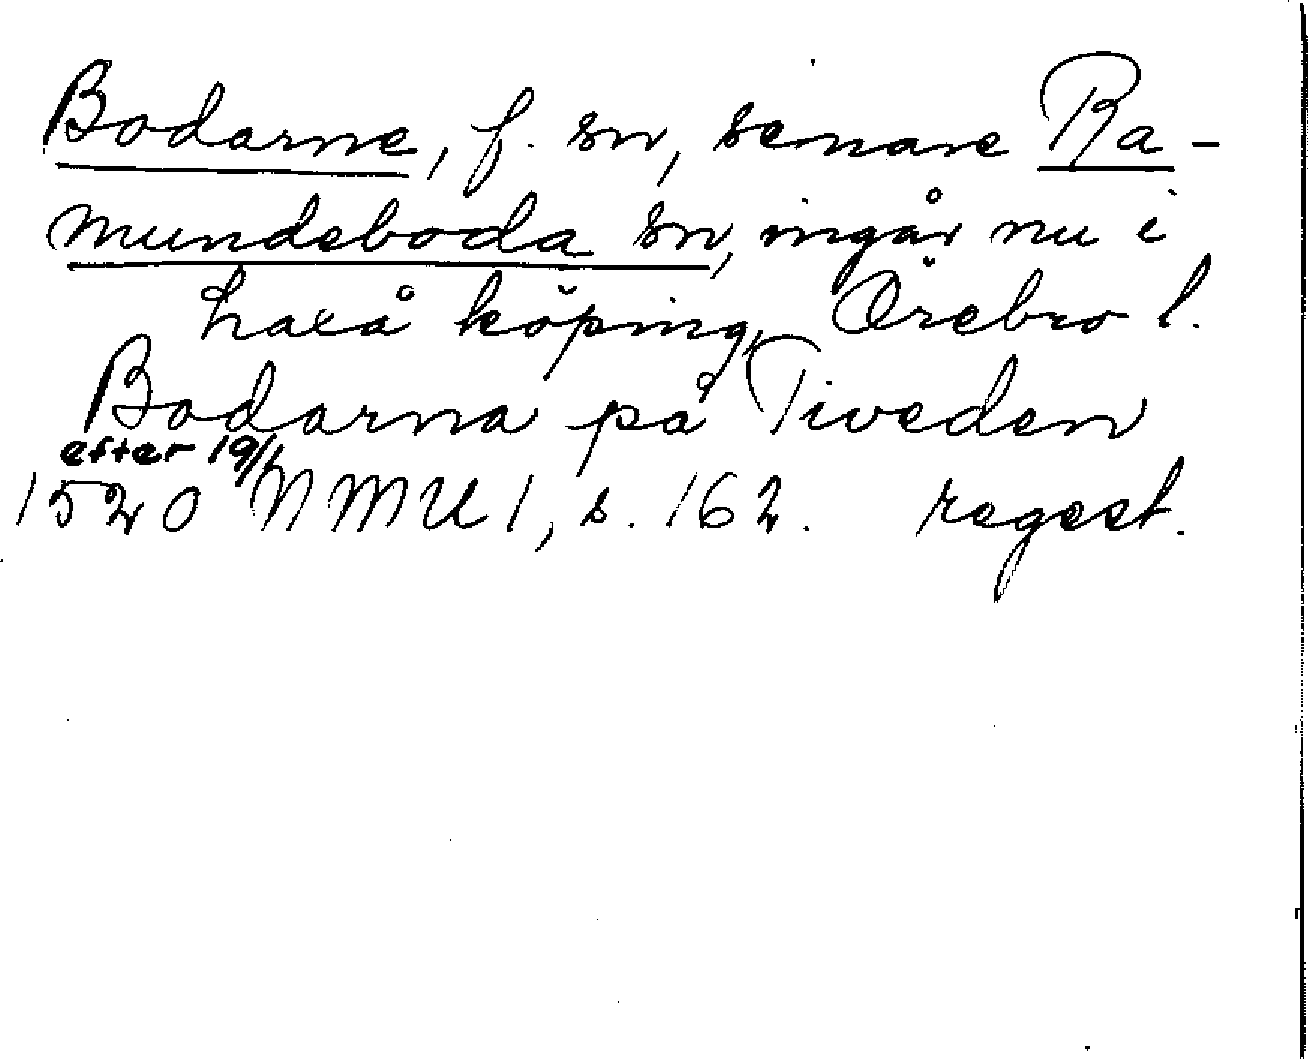 Bodarne, f. sn, senare Ra-
mundeboda sn, ingår nu i
Laxå köping, Örebro l.
Bodarna på Tiveden
efter 19/1
1520 NMU 1, s. 162. regest.